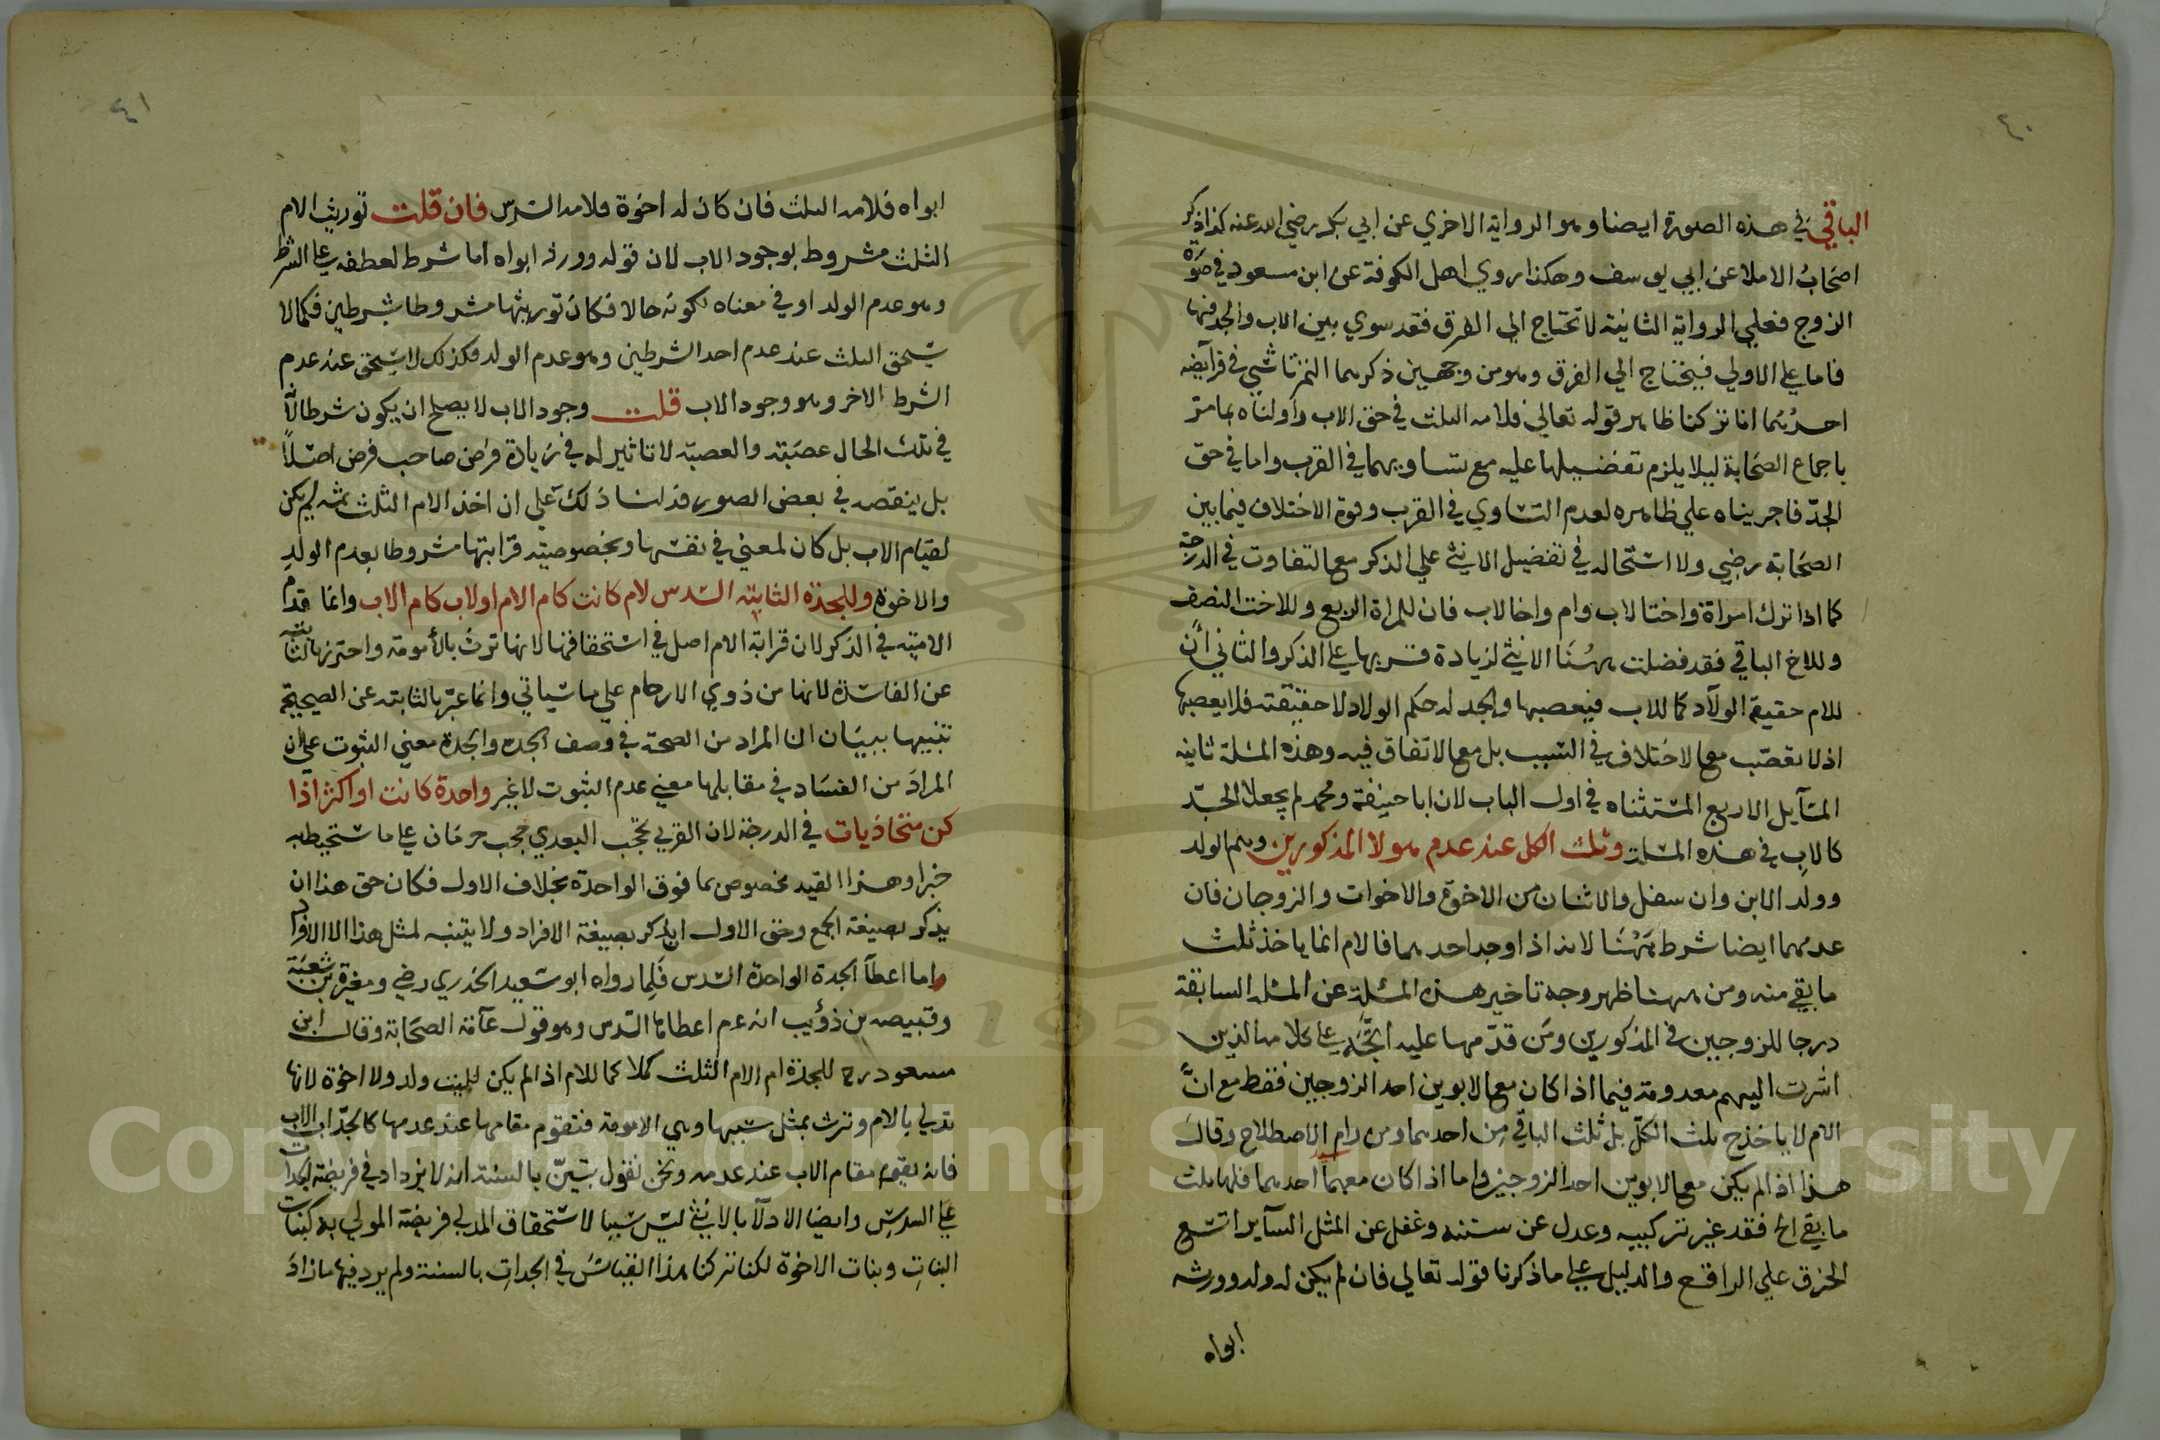 ٤٠
الباقي في هذه الصورة ايضا وهو الرواية الاخري عن ابي بكر رضي الله عنه كذا ذكر
اصحاب الاملا عن ابي يوسف وهكذا روي اهل الكوفة عن ابن مسعود في صورة
الزوج فعلي الرواية الثانية لا تحتاج الي الفرق فقد سوي بين الاب والجد فيها
فاما علي الاولي فيحتاج الي الفرق وهو من وجهين ذكرهما التمرتاشي في فرآيضه
احدهما انا تركنا ظاهر قوله تعالي فلامه الثلث في حق الاب واولناه بما مر
باجماع الصحابة ليلا يلزم تفضيلها عليه مع تساويهما في القرب واما في حق
الجد فاجريناه علي ظاهره لعدم التساوي في القرب وقوة الاختلاف فيما بين
الصحابة رضي ولا استحاله في تفضيل الانثي علي الذكر مع التفاوت في الدرجة
كما اذا ترك امراة واختا لاب وام واخا لاب فان للمراة الربع وللاخت النصف
وللاخ الباقي فقد فضلت ههنا الانثي لزيادة قربها علي الذكر والثاني ان
للام حقيقة الولاد كما للاب فيعصبها والجد له حكم الولاد لا حقيقته فلا يعصبها
اذ لا تعصب مع الاختلاف في السبب بل مع الاتفاق فيه وهذه المسئلة ثانية
المسآيل الاربع المستثناه في اول الباب لان ابا حنيفة ومحمد لم يجعلا الجد
كالاب في هذه المسئلة وثلث الكل عند عدم هولا المذكورين وهم الولد
وولد الابن وان سفل والاثنان من الاخوة والاخوات والزوجان فان
عدمهما ايضا شرط ههنا لانه اذا وجد احدهما فالام انما ياخذ ثلث
ما بقي منه ومن ههنا ظهر وجه تاخير هذه المسئلة عن المسئلة السابقة
درجا للزوجين في المذكورين ومن قدمها عليه اتجه علي كلامه الذين
اشرت اليهم معدومة فيما اذا كان مع الابوين احد الزوجين فقط مع ان
الام لا ياخذ ح ثلث الكل بل ثلث الباقي من احدهما ومن رام الاصلاح وقال
هذا اذا لم يكن مع الابوين احد الزوجين واما اذا كان معهما احدهما فلها ثلث
ما بقي الخ فقد غير تركيبه وعدل عن سننه وغفل عن المثل السآير اتسع
الخرق علي الراقع والدليل علي ما ذكرنا قوله تعالي فان لم يكن له ولد وورثه
ابواه
٤١
ابواه فلامه الثلث فان كان له اخوة فلامه السدس فان قلت توريث الام
الثلث مشروط بوجود الاب لان قوله وورثه ابواه اما شرط لعطفه علي الشرط
وهو عدم الولد او في معناه لكونه حالا فكان توريثها مشروطا بشرطين فكما لا
يستحق الثلث عند عدم احد الشرطين وهو عدم الولد فكذلك لا يستحق عند عدم
الشرط الاخر وهو وجود الاب قلت وجود الاب لا يصلح ان يكون شرطا لانه
في تلك الحال عصبة والعصبة لا تاثير له في زيادة فرض صاحب فرض اصلاً
بل ينقصه في بعض الصور فدلنا ذلك علي ان اخذ الام الثلث ثمه لم يكن
لقيام الاب بل كان لمعني في نفسها وبخصوصية قرابتها مشروطا بعدم الولد
والاخوة وللجدة الثابتة السدس لام كانت كام الام او لاب كام الاب وانما قدم
الامية في الذكر لان قرابة الام اصل في استحقاقها لانها ترث بالأمومة واحترز بالثابته
عن الفاسدة لانها من ذوي الارحام علي ما سياتي وانما عبر بالثابته عن الصحيحة
تنبيها ببيان ان المراد من الصحة في وصف الجده والجدة معني الثبوت علي ان
المراد من الفساد في مقابلها معني عدم الثبوت لا غير واحدة كانت او اكثر اذا
كن متحاذيات في الدرجة لان القربي تحجب البعدي حجب حرمان علي ما ستحيط به
خبرا وهذا القيد مخصوص بما فوق الواحدة بخلاف الاول فكان حق هذا ان
يذكر بصيغة الجمع وحق الاول ان يذكر بصيغة الافراد ولا يتنبه لمثل هذا الا الافراد
واما اعطآ الجدة الواحدة السدس فلما رواه ابو سعيد الخدري رضي ومغيرة بن شعبة
وقبيصه بن ذؤيب انه عم اعطاها السدس وهو قول عآمة الصحابة وقال ابن
مسعود رح للجدة ام الام الثلث كملا كما للام اذا لم يكن للميت ولد ولا اخوة لانها
تدلي بالام وترث بمثل سببها وهي الامومة فتقوم مقامها عند عدمها كالجد اب الاب
فانه يقوم مقام الاب عند عدمه ونحن نقول تبين بالسنة انه لا يزداد في فريضة الجدات
علي السدس وايضا الادلآ بالانثي ليس سببا لاستحقاق المدلي فريضة المدلي به كبنات
البنات وبنات الاخوة لكنا تركنا هذا القياس في الجدات بالسنة ولم يرد فيها ما زاد
Copyright © King Saud University
1957